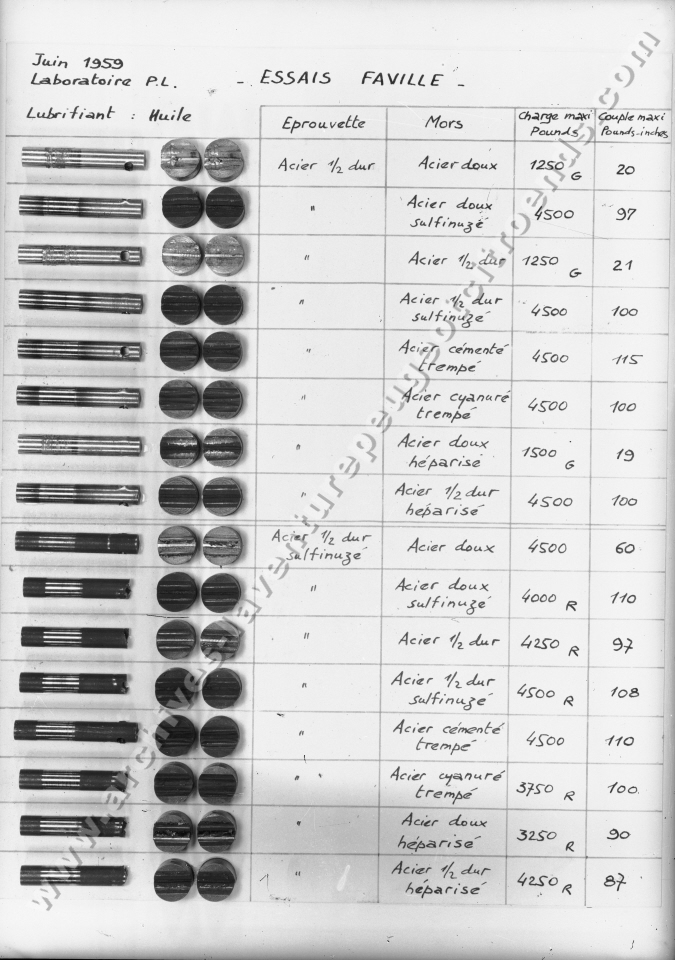 Juin 1959
Laboratoire P.L.
- ESSAIS FAVILLE -
Lubrifiant : Huile
Eprouvette Mors Charge maxi Pounds Couple maxi Pounds-inches
Acier 1/2 dur Acier doux 1250 G 20
" Acier doux sulfinuzé 4500 97
" Acier 1/2 dur 1250 G 21
" Acier 1/2 dur sulfinuzé 4500 100
" Acier cémenté trempé 4500 115
" Acier cyanuré trempé 4500 100
" Acier doux héparisé 1500 G 19
" Acier 1/2 dur héparisé 4500 100
Acier 1/2 dur sulfinuzé Acier doux 4500 60
" Acier doux sulfinuzé 4000 R 110
" Acier 1/2 dur 4250 R 97
" Acier 1/2 dur sulfinuzé 4500 R 108
" Acier cémenté trempé 4500 110
" Acier cyanuré trempé 3750 R 100
" Acier doux héparisé 3250 R 90
" Acier 1/2 dur héparisé 4250 R 87
www.archives.laventurepeugeotcitroends.com